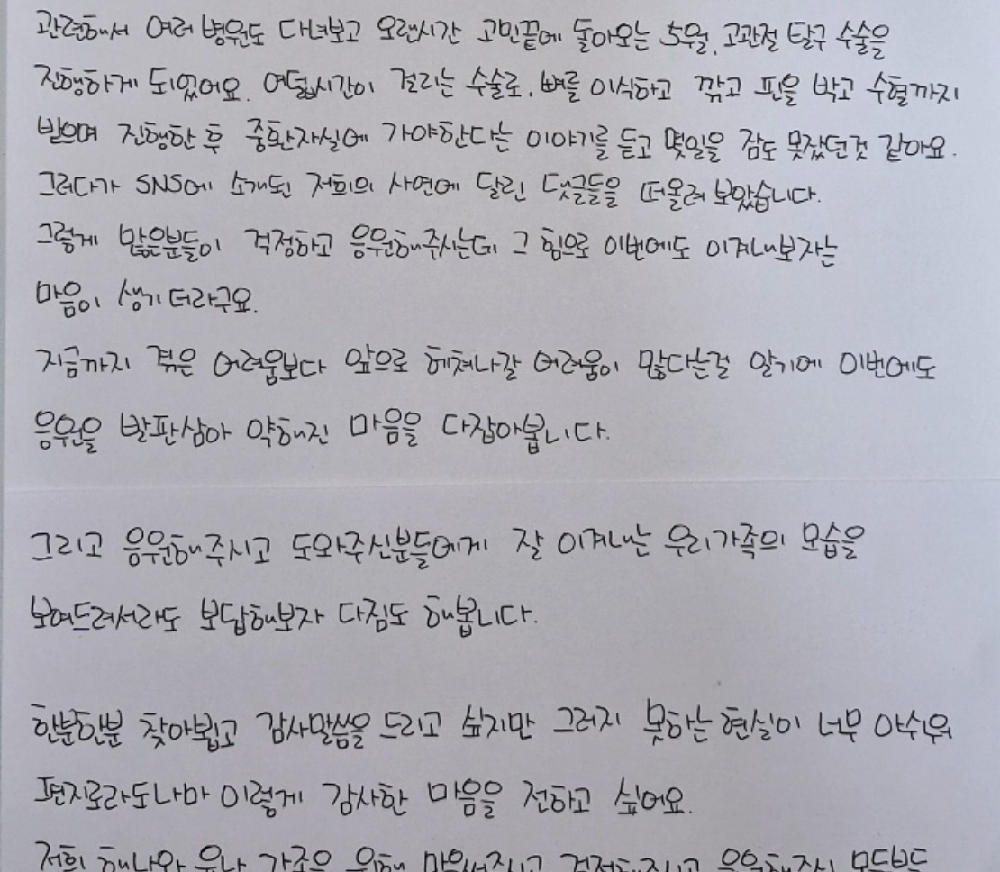 관련해서 여러 병원도 다녀보고 오랜시간 고민끝에 돌아오는 5월, 고관절 탈구 수술을
진행하게 되었어요. 여덟시간이 걸리는 수술로, 뼈를 이식하고 깎고 핀을 박고 수혈까지
받으며 진행한 후 중환자실에 가야한다는 이야기를 듣고 몇일을 잠도 못잤던것 같아요.
그러다가 SNS에 소개된 저희의 사연에 달린 댓글들을 떠올려 보았습니다.
그렇게 많은분들이 걱정하고 응원해주시는데 그 힘으로 이번에도 이겨내보자는
마음이 생기더라구요.
지금까지 겪은 어려움보다 앞으로 헤쳐나갈 어려움이 많다는걸 알기에 이번에도
응원을 발판삼아 약해진 마음을 다잡아봅니다.
그리고 응원해주시고 도와주신분들에게 잘 이겨내는 우리가족의 모습을
보여드려서라도 보답해보자 다짐도 해봅니다.
한분한분 찾아뵙고 감사말씀을 드리고 싶지만 그러지 못하는 현실이 너무 아쉬워
편지로라도나마 이렇게 감사한 마음을 전하고 싶어요.
저희 해나와 유나 가족을 위해 마음써주시고 걱정해주시고 응원해주신 모든분들